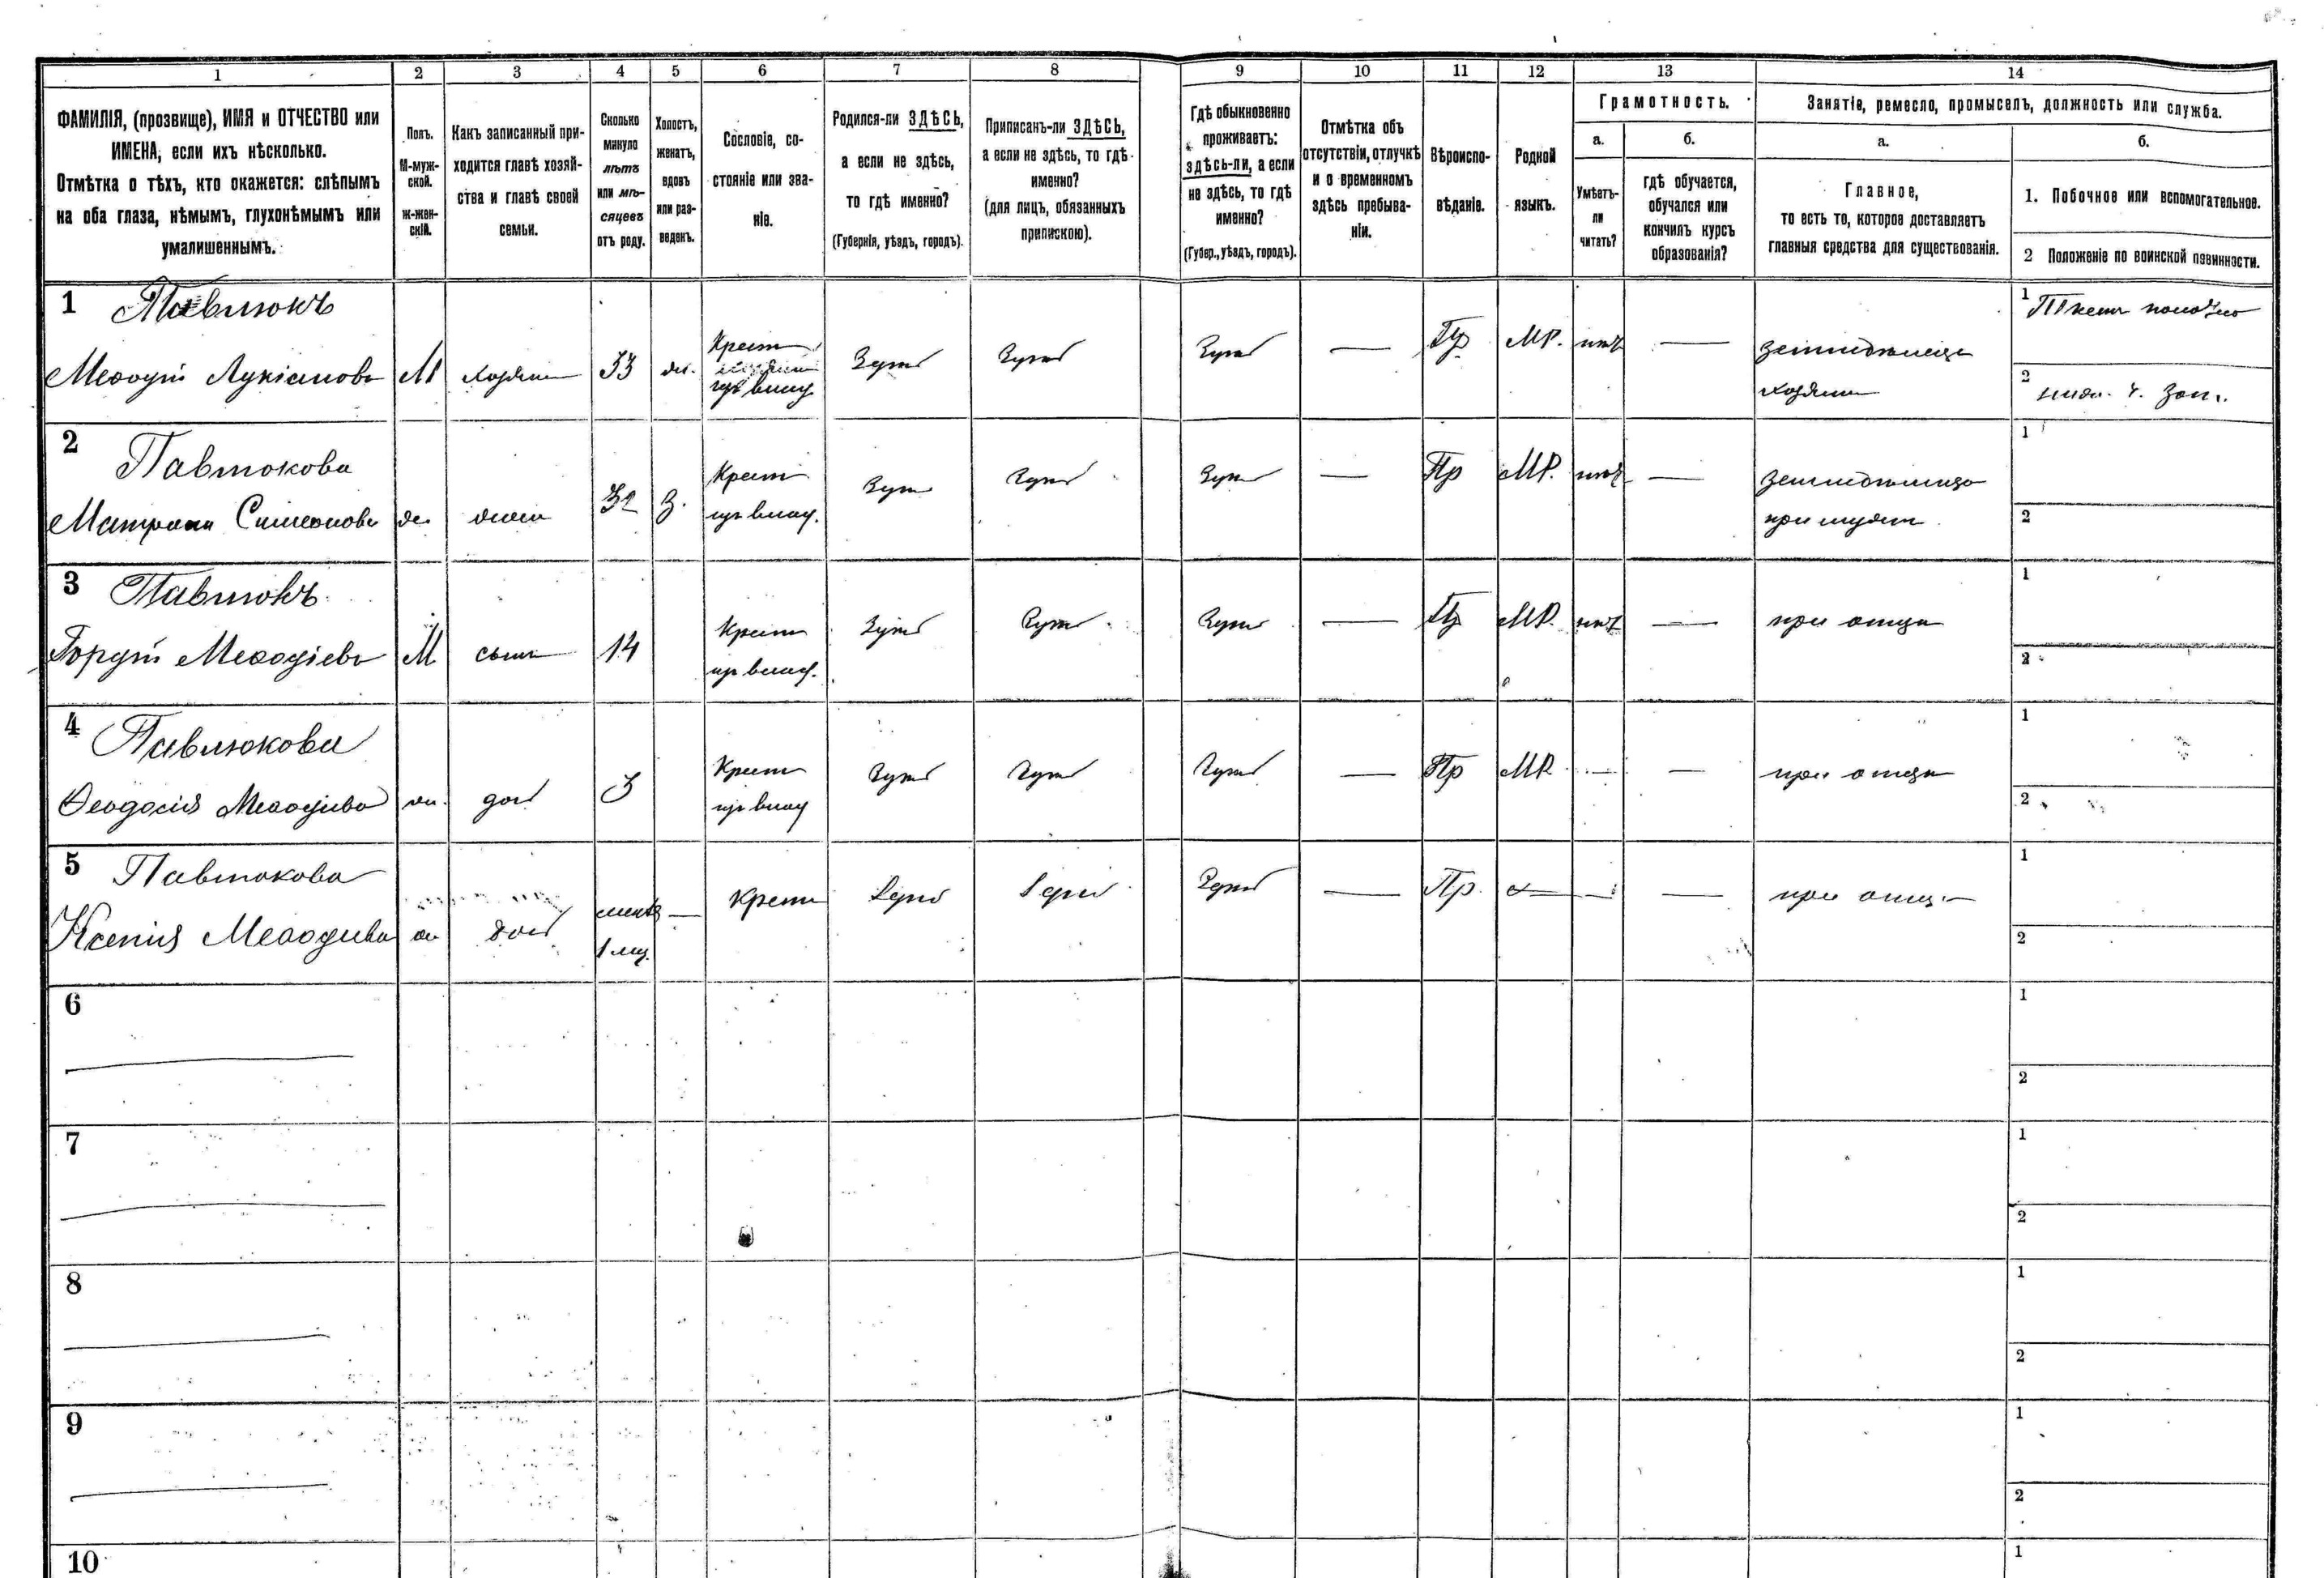 1 2 3 4 5 6 7 8 9 10 11 12 13 14
ФАМИЛІЯ, (прозвище), ИМЯ и ОТЧЕСТВО или
ИМЕНА, если ихъ нѣсколько.
Отмѣтка о тѣхъ, кто окажется: слѣпымъ
на оба глаза, нѣмымъ, глухонѣмымъ или
умалишеннымъ.
Полъ.
М-муж-
ской.
Ж-жен-
скій.
Какъ записанный при-
ходится главѣ хозяй-
ства и главѣ своей
семьи.
Сколько
минуло
лѣтъ
или мѣ-
сяцевъ
отъ роду.
Холостъ,
женатъ,
вдовъ
или раз-
веденъ.
Сословіе, со-
стояніе или зва-
ніе.
Родился-ли ЗДѢСЬ,
а если не здѣсь,
то гдѣ именно?
(Губернія, уѣздъ, городъ).
Приписанъ-ли ЗДѢСЬ,
а если не здѣсь, то гдѣ
именно?
(для лицъ, обязанныхъ
припискою).
Гдѣ обыкновенно
проживаетъ:
здѣсь-ли, а если
не здѣсь, то гдѣ
именно?
(Губер., уѣздъ, городъ).
Отмѣтка объ
отсутствіи, отлучкѣ
и о временномъ
здѣсь пребыва-
ніи.
Вѣроиспо-
вѣданіе.
Родной
языкъ.
Грамотность.
а.
Умѣетъ-
ли
читать?
б.
гдѣ обучается,
обучался или
кончилъ курсъ
образованія?
Занятіе, ремесло, промыселъ, должность или служба.
а.
Главное,
то есть то, которое доставляетъ
главныя средства для существованія.
б.
1. Побочное или вспомогательное.
2 Положеніе по воинской повинности.
1 Павлюкъ
Меѳодій Лукіановъ М хозяин 33 Крест Здѣсь Здѣсь Здѣсь — Пр МР. нѣт —
хозяин
1
2
2 Павлюкова
Матрона Симеонова ж жена 32 З. Крест Здѣсь Здѣсь Здѣсь — Пр МР. нѣт —
при мужѣ
1
2
3 Павлюкъ
Меѳодіевъ М сынъ 14 Крест Здѣсь Здѣсь Здѣсь — Пр МР. нѣт — при отцѣ
1
2
4 Павлюкова
Ѳеодосія Меѳодіева ж доч 3 Крест Здѣсь Здѣсь Здѣсь — Пр МР — — при отцѣ
1
2
5 Павлюкова
Ксенія Меѳодіева ж доч — Крест Здѣсь Здѣсь Здѣсь — Пр. — — при отцѣ
1 мѣс.
1
2
6
1
2
7
1
2
8
1
2
9
1
2
10
1